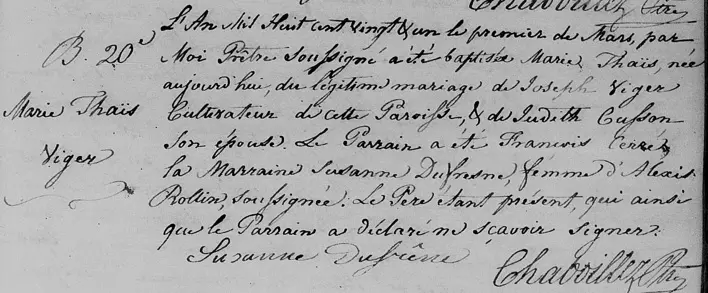 Chaboillez Ptre
B. 20e
Marie Thaïs
Viger
L'An Mil Huit cent vingt & un le premier de Mars, par
Moi Prêtre soussigné a été baptisée Marie Thaïs, née
aujourd'hui, du légitime mariage de Joseph Viger
Cultivateur de cette Paroisse, & de Judith Cusson
Son épouse. Le Parrain a été François Cerré,
la Marraine Susanne Dufresne, femme d'Alexis
Rollin, soussignée. Le Père étant présent, qui ainsi
que le Parrain a déclaré ne sçavoir signer.
Susanne Dufrêne
Chaboillez Ptre